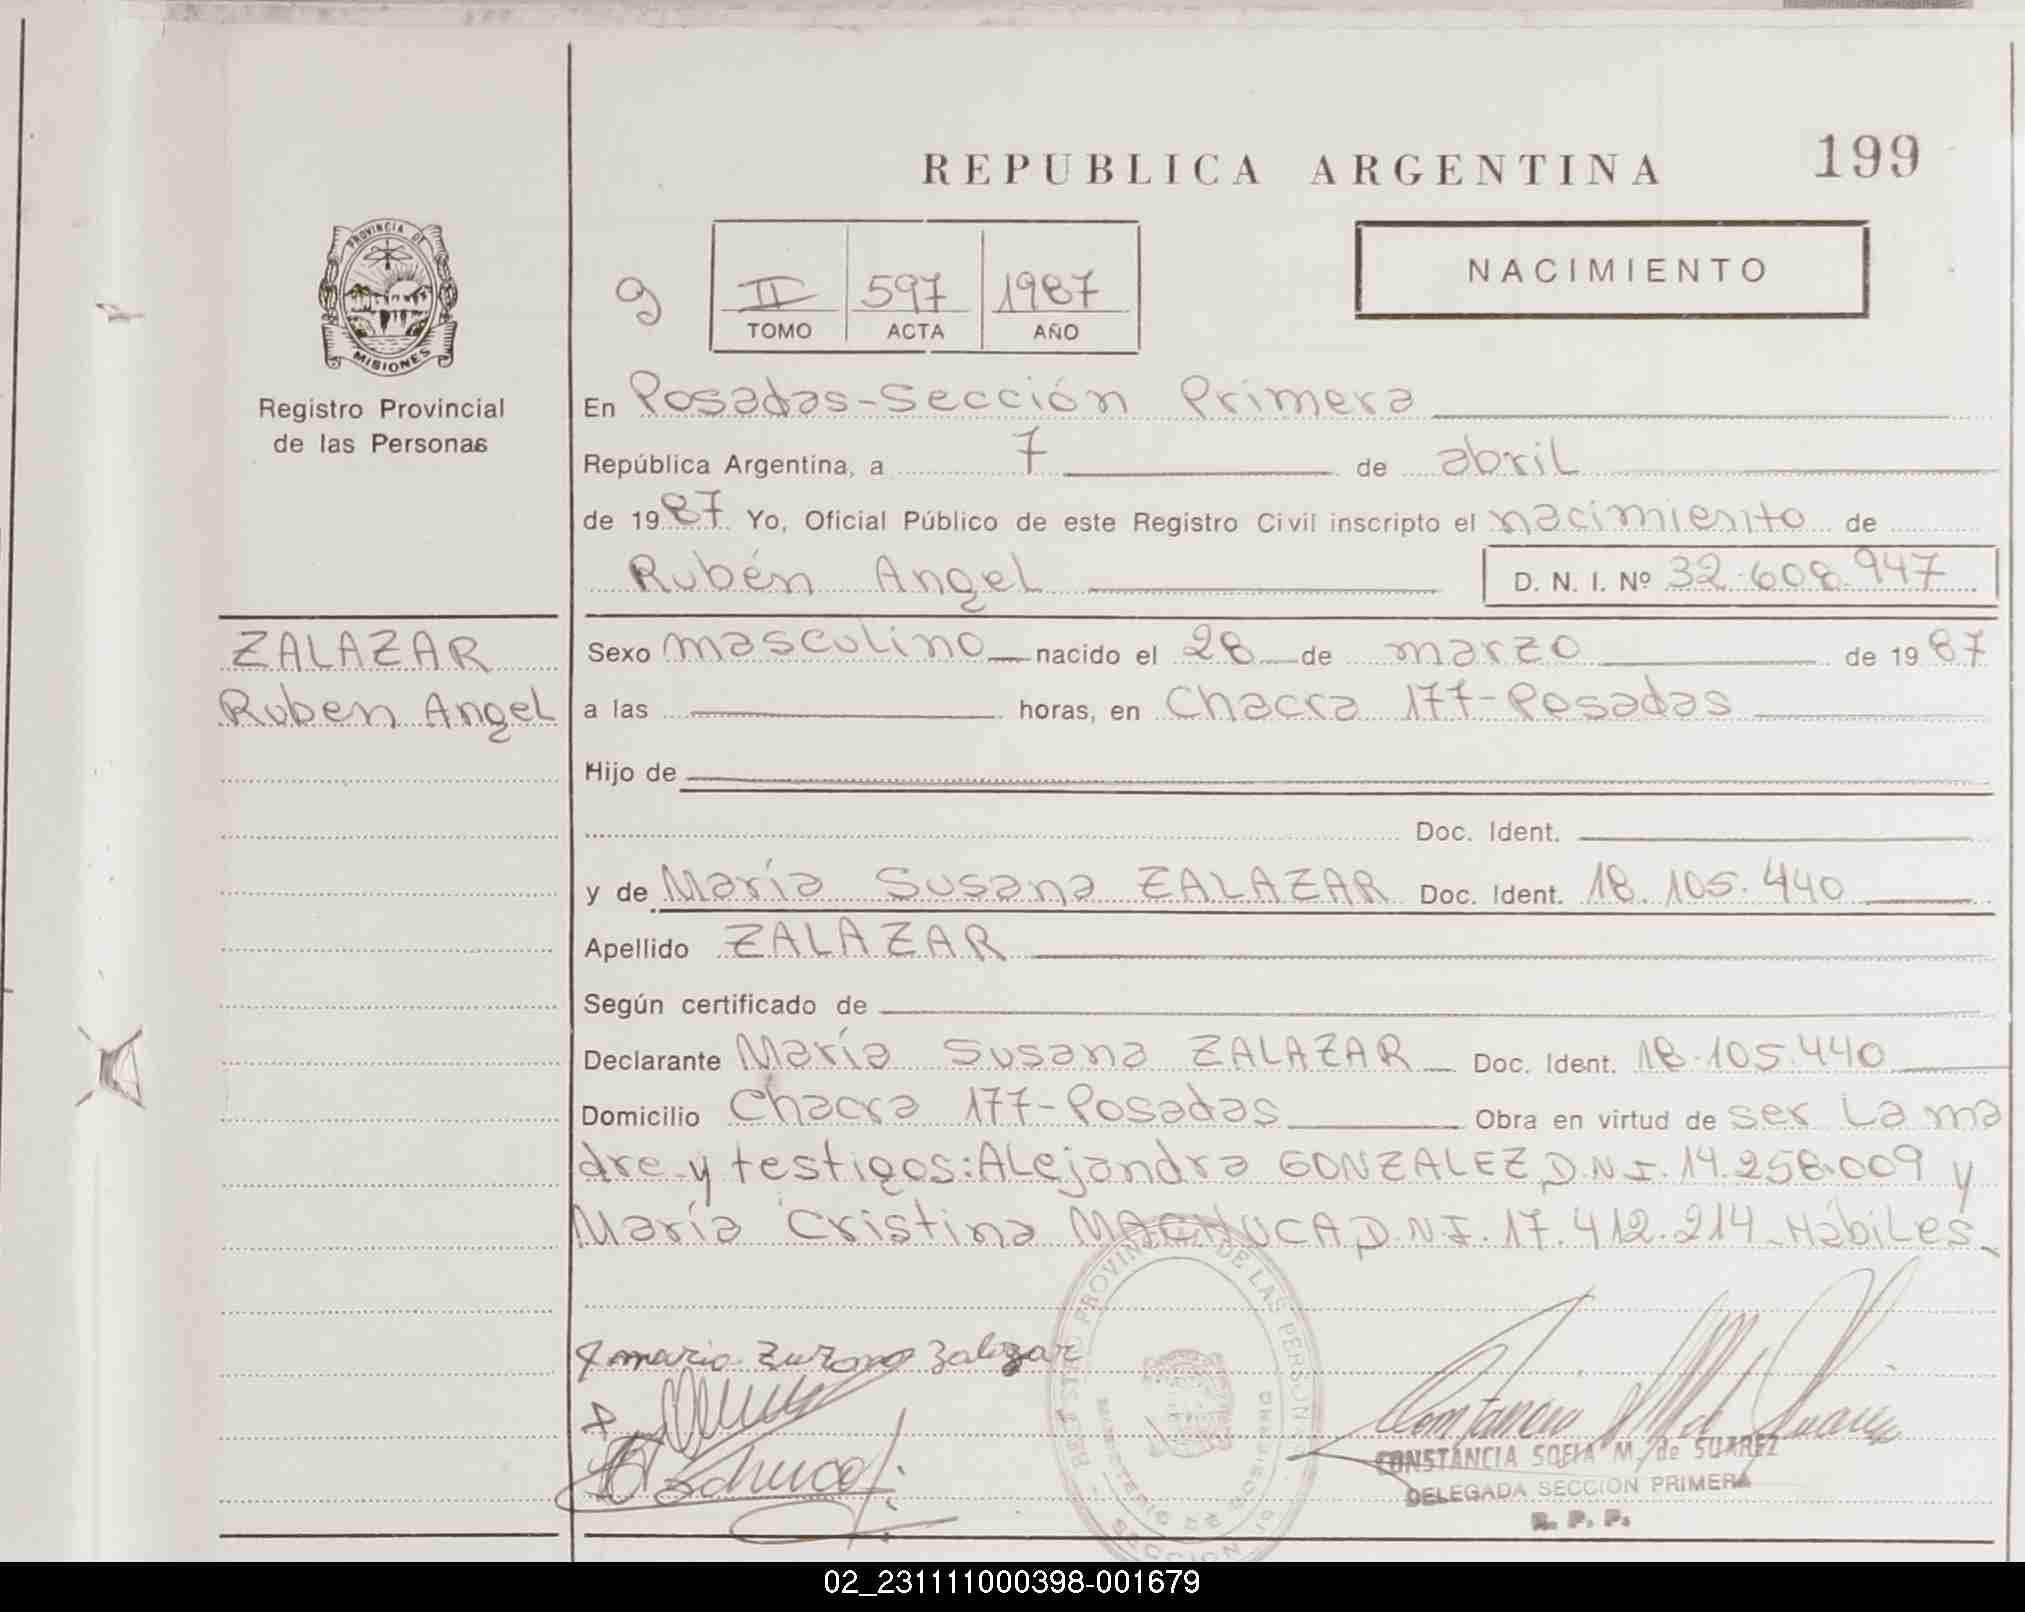 REPUBLICA ARGENTINA
199
PROVINCIA DE
MISIONES
Registro Provincial
de las Personas
9
II 597 1987
TOMO ACTA AÑO
NACIMIENTO
En Posadas-Sección Primera
República Argentina, a 7 de abril
de 1987 Yo, Oficial Público de este Registro Civil inscripto el nacimiento de
Rubén Angel D. N. I. Nº 32.608.947
ZALAZAR
Ruben Angel
Sexo masculino nacido el 28 de marzo de 1987
a las horas, en Chacra 177-Posadas
Hijo de
Doc. Ident.
y de María Susana ZALAZAR Doc. Ident. 18.105.440
Apellido ZALAZAR
Según certificado de
Declarante María Susana ZALAZAR Doc. Ident. 18.105.440
Domicilio Chacra 177-Posadas Obra en virtud de ser La ma
dre y testigos: ALejandra GONZALEZ, D.N.I. 14.258.009 y
María Cristina MACHUCA, D.N.I. 17.412.214 - HábiLes
REGISTRO PROVINCIAL DE LAS PERSONAS
MINISTERIO DE GOBIERNO
SECCION
CONSTANCIA SOFIA M. de SUAREZ
DELEGADA SECCION PRIMERA
R. P. P.
02_231111000398-001679